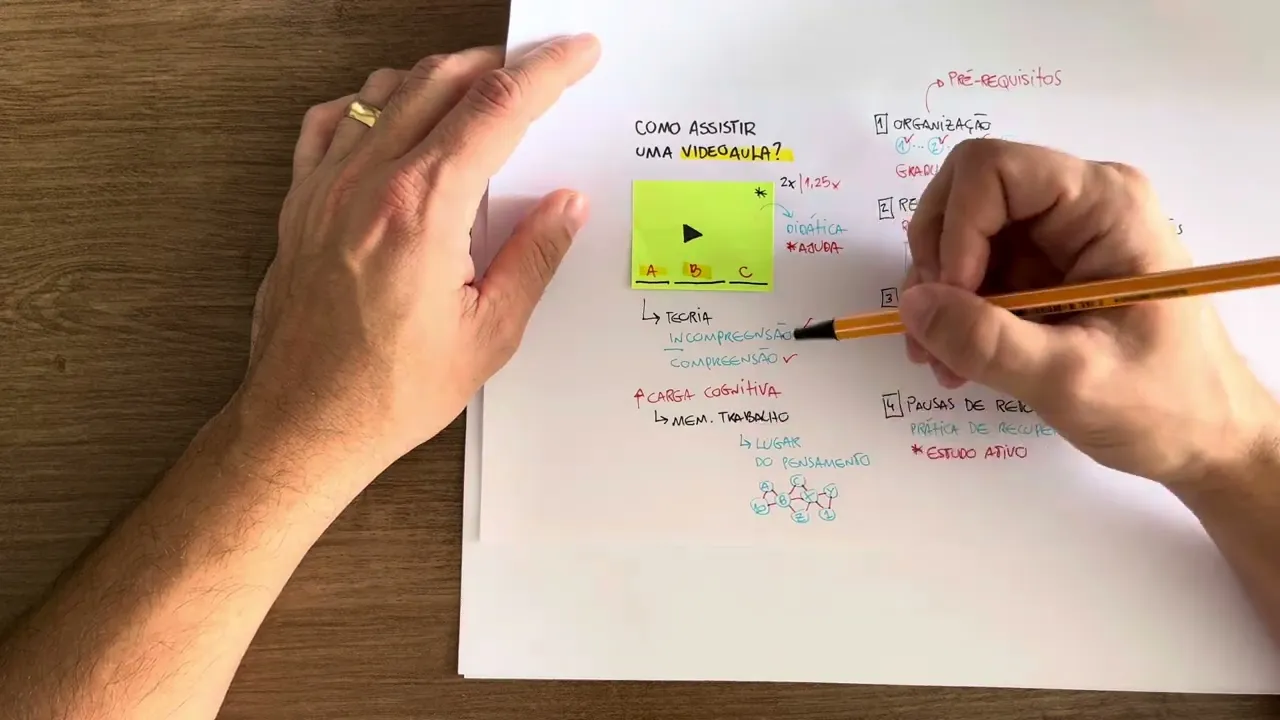 COMO ASSISTIR
UMA VIDEOAULA?
2x | 1,25x
*
DIDÁTICA
*AJUDA
A B C
TEORIA
INCOMPREENSÃO
COMPREENSÃO
CARGA COGNITIVA
MEM. TRABALHO
LUGAR
DO PENSAMENTO
PRÉ-REQUISITOS
1 ORGANIZAÇÃO
1 ... 2
2
3
4 PAUSAS DE
PRÁTICA DE
*ESTUDO ATIVO